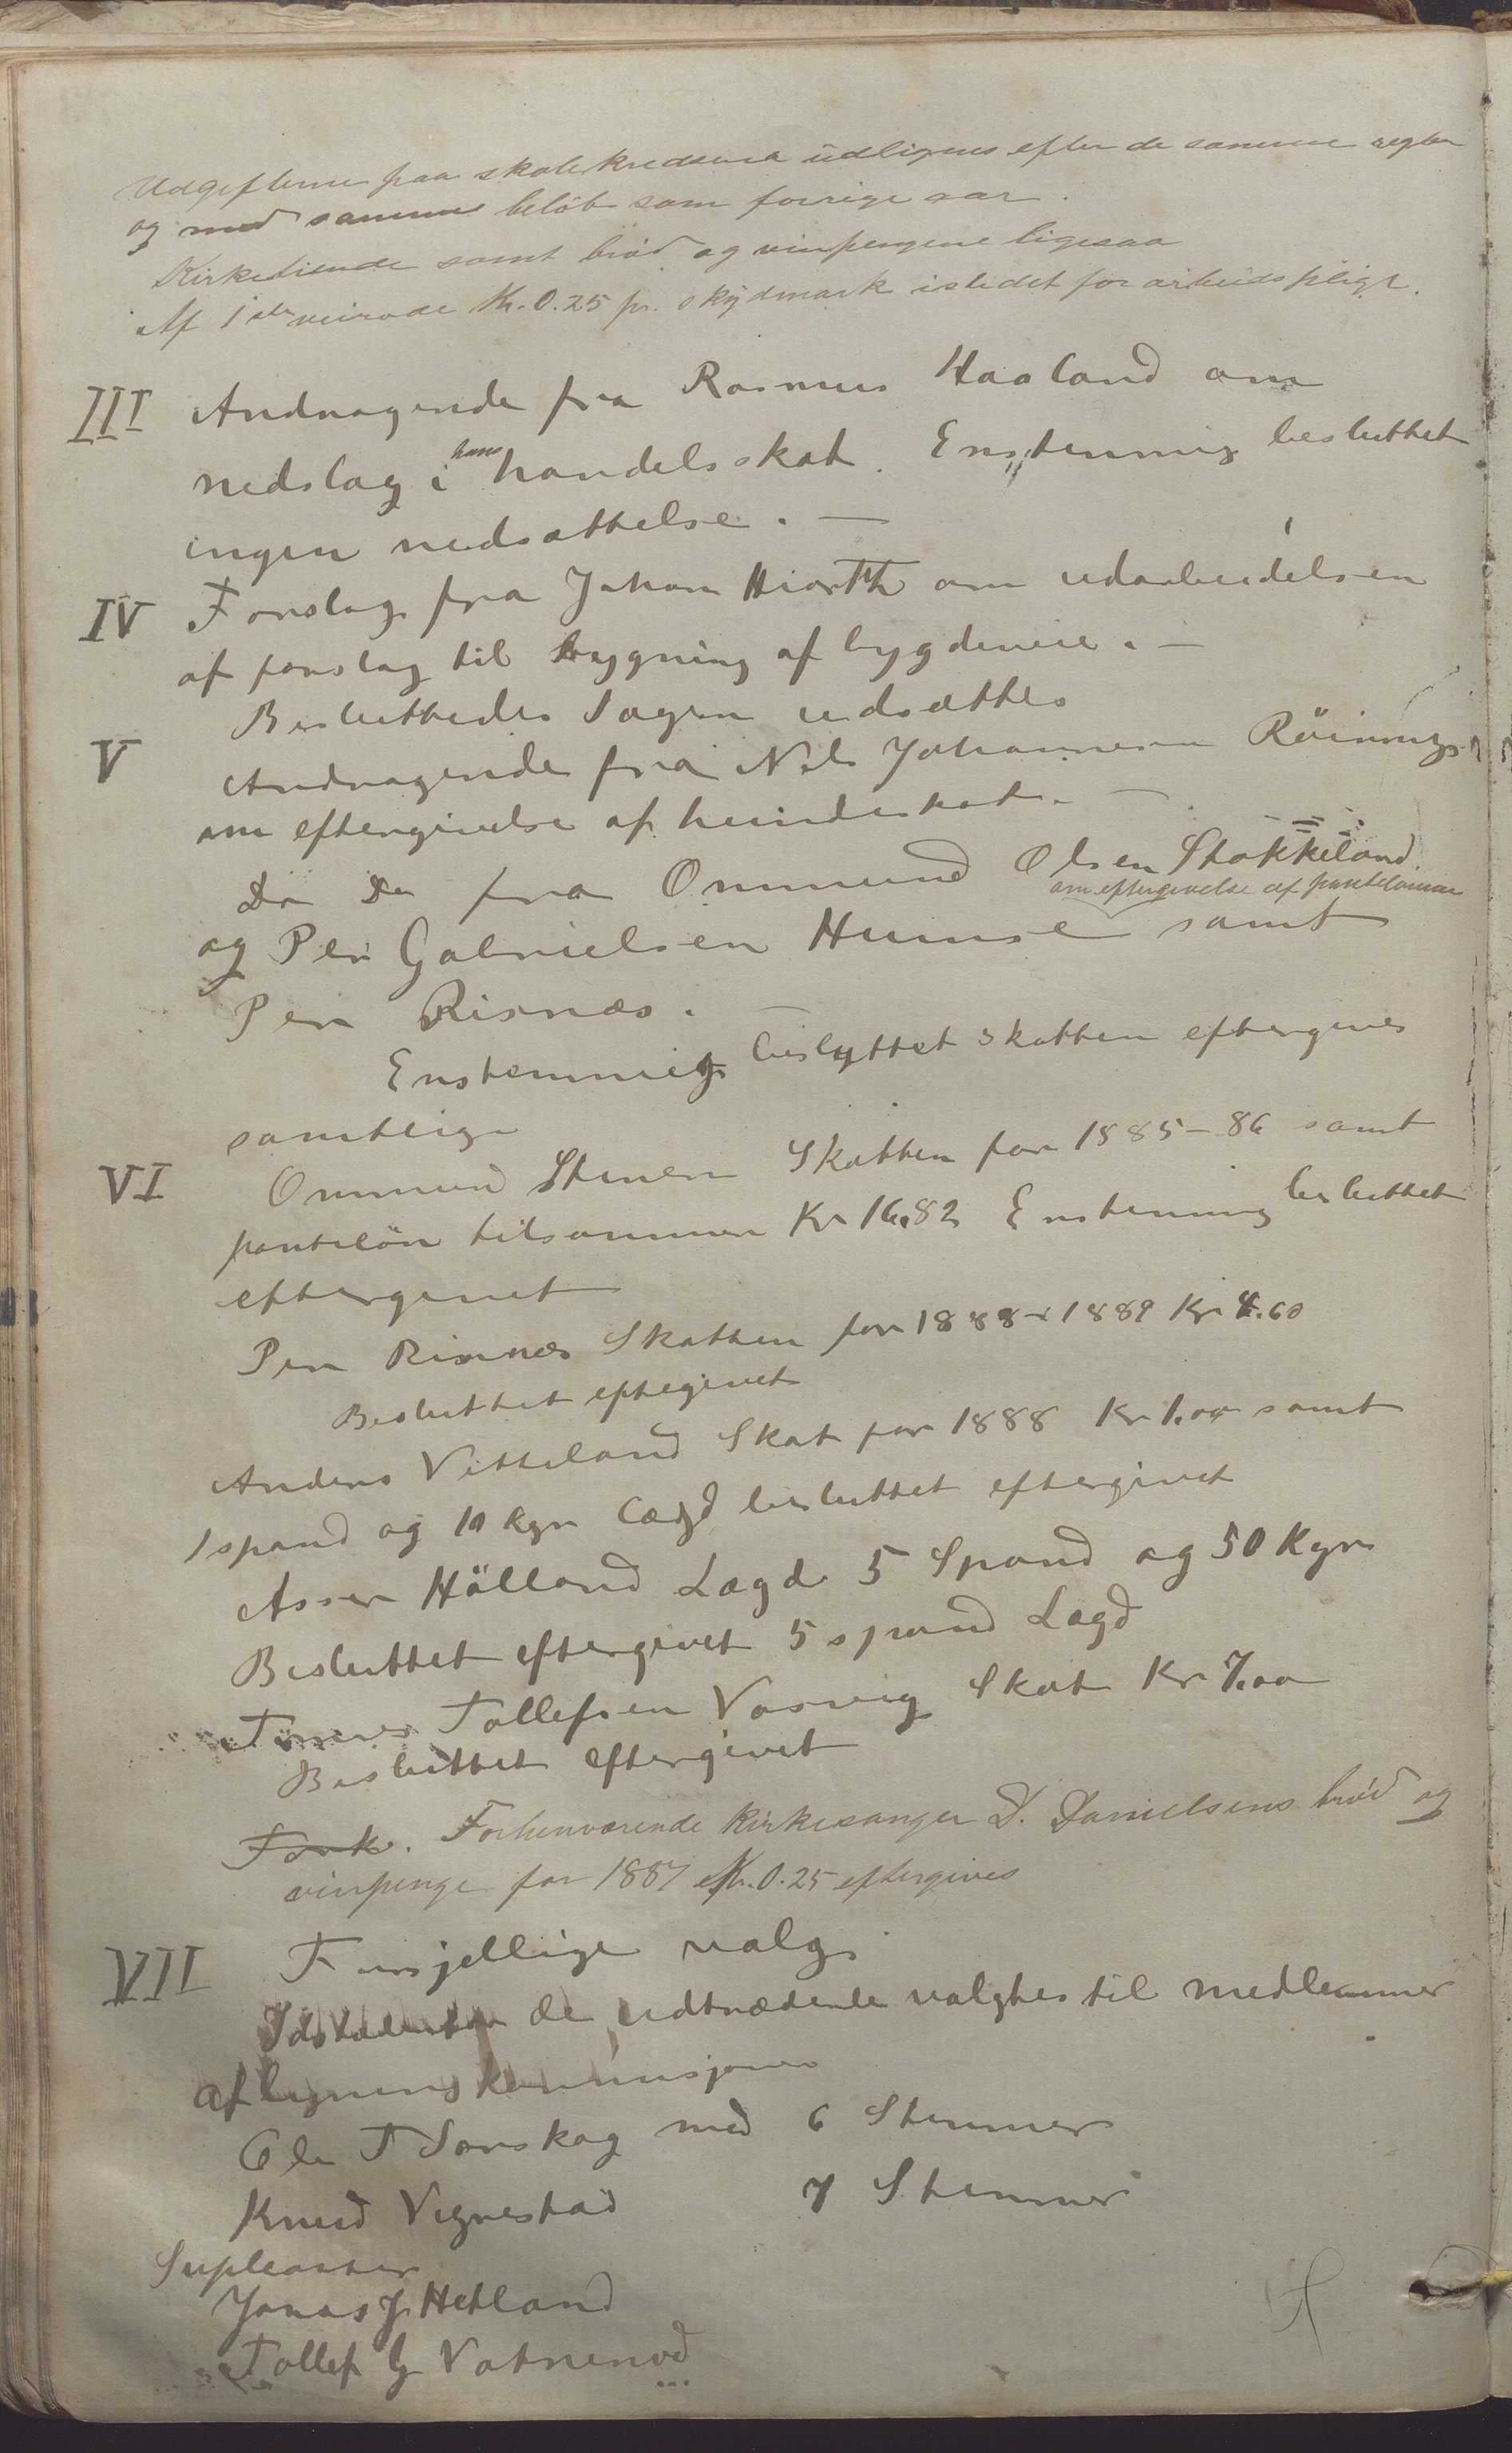 Udgifterne paa skolekredsene udlignes efter de samme regler
og med samme beløb som forrige aar.
Kirketiende samt brød og vinpengene ligesaa
Af 1ste veirode Kr. 0.25 pr. skydmark istedet for arbeidspligt.
III Andragende fra Rasmus Haaland om
nedslag i hans handelsskat. Enstemmig besluttet
ingen nedsættelse. —
IV Forslag fra Johan Hiorth om udarbeidelsen
af forslag til bygning af bygdeveie. —
Besluttedes Sagen udsættes
V Andragende fra Nils Johannesen
om eftergivelse af hundeskat. —
Do Do fra Ommund Olsen Stokkeland
om eftergivelse af pantelønnen
og Per Gabrielsen Humse samt
Per Risnæs. —
Enstemmig beslyttet skatten eftergives
samtlige
VI Ommund Skatten for 1885-86 samt
panteløn tilsammen Kr 16.82 Enstemmig besluttet
eftergivet
Per Risnæs Skatten for 1888 1889 Kr 4.60
Besluttet eftegivet
Anders Vitteland Skat for 1888 Kr 1.00 samt
1 spand og 10 Kgr Lægd besluttet eftergivet
Asser Hölland Lægd 5 Spand og 50 Kgr
Besluttet eftergivet 5 spand Lægd
Tollefsen Vasvig Skat Kr 7.00
Besluttet eftergivet
Fork. Forhenværende Kirkesanger D. Danielsens brød og
vinpenge for 1887 Kr. 0.25 eftergives
VII Forsjellige valg.
de udtrædende valgtes til medlemmer
af ligningskommisjonen
Ole T Sorskog med 6 Stemmer
Knud Vignestad 7 Stemmer
Supleanter
Jonas J. Hetland
Tollef G Vatnemod